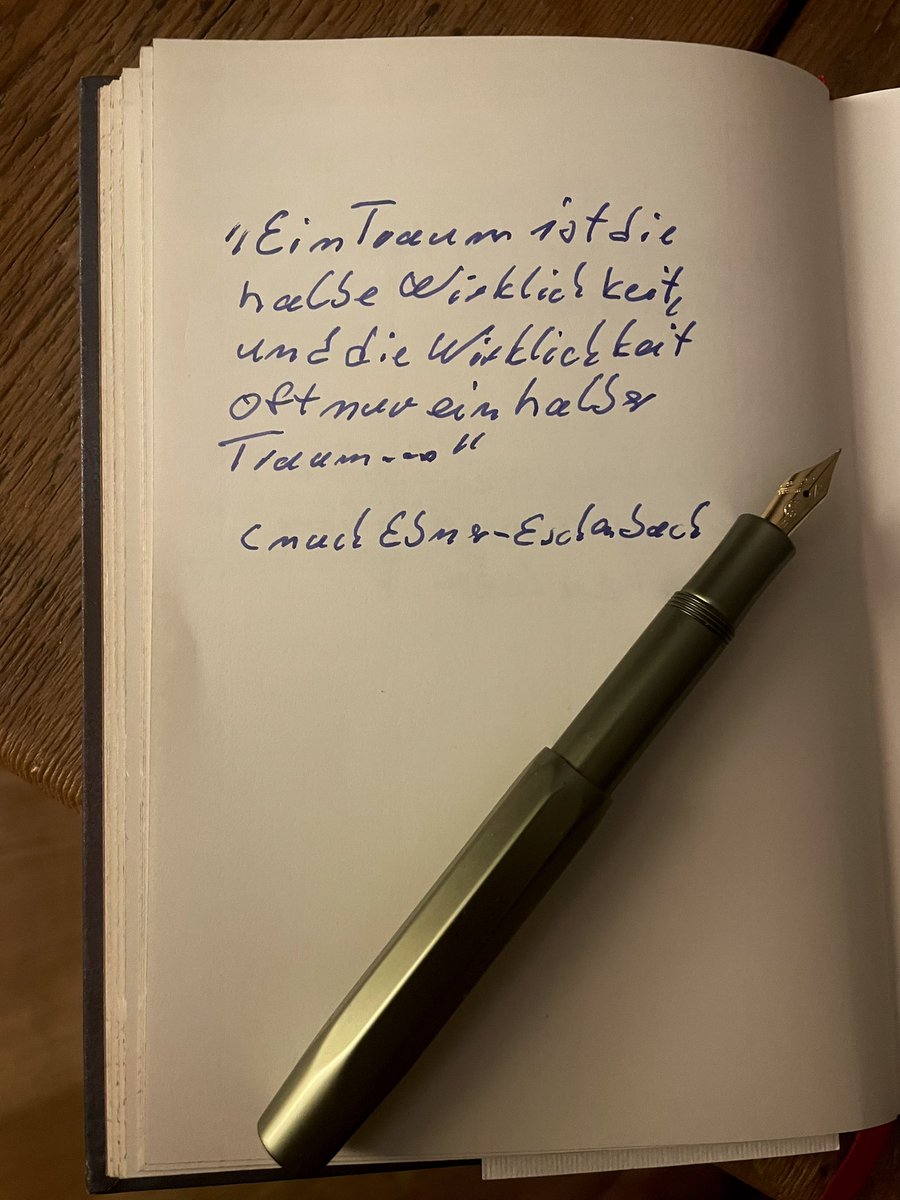 „Ein Traum ist die
halbe Wirklichkeit,
und die Wirklichkeit
oft nur ein halber
Traum..."
(nach Ebner-Eschenbach